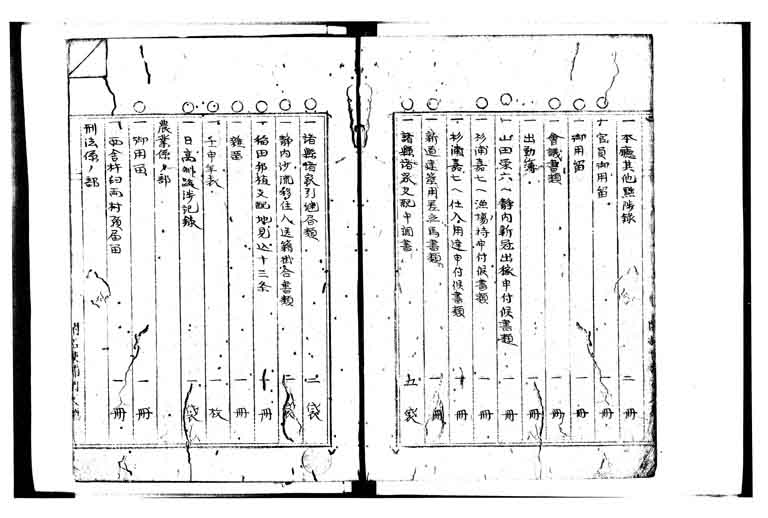 一本廳其他黜陟録 二冊
一官員御用留 一冊
一御用留 一冊
一會議書類 一冊
一出勤簿 一冊
一山田榮六ヘ静内新冠出稼申付候書類 一冊
一杉浦嘉七ヘ漁場持申付候書類 一冊
一杉浦嘉七ヘ仕入用達申付候書類 一冊
一新道 用 馬書類 一冊
一諸縣諸家支配中調書 五袋
一諸縣諸家引連名類 二袋
一静内沙流移住人送籍 書類 袋
一稲田邦植支配地見込十三条 冊
一雑留 一冊
一壬申年表 一枚
一日高州跋渉記録 一袋
農業係ノ部
一御用留 一冊
一 村 届留 一冊
刑法係ノ部